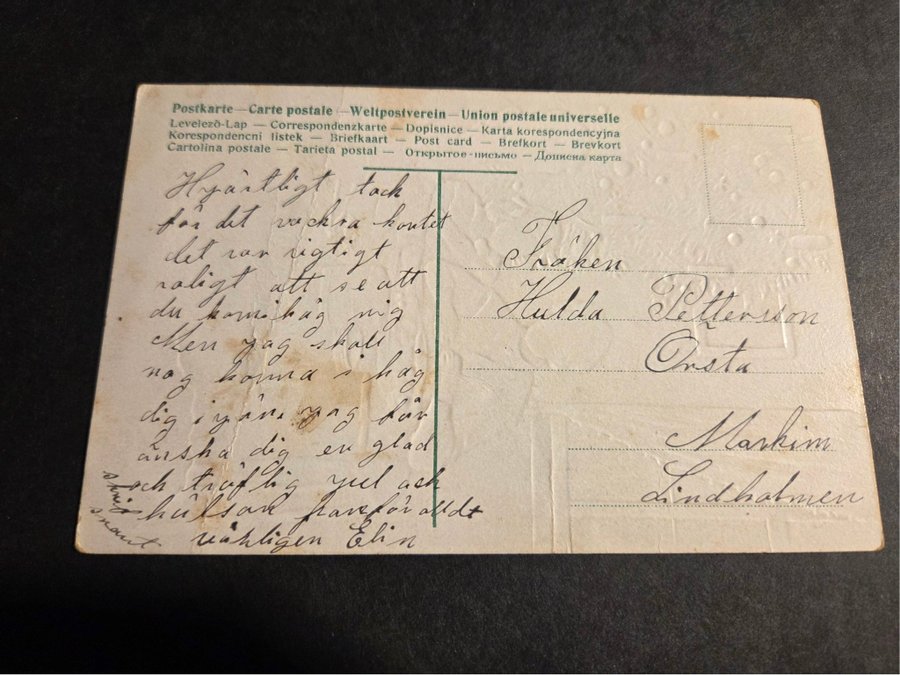 Postkarte — Carte postale — Weltpostverein — Union postale universelle
Levelező-Lap — Correspondenzkarte — Dopisnice — Karta korespondencyjna
Korespondencní lístek — Briefkaart — Post card — Brefkort — Brevkort
Cartolina postale — Tarieta postal — Открытое-письмо — Дописна карта
Hyärtligt tack
för det vackra kortet
det var rigtigt
roligt att se att
du komihåg mig
Men yag skall
nog komma i håg
dig iyän. yag får
önska dig en glad
och träflig yul och
hälsan framför alldt
vänligen Elin
skrif snart
Fröken
Hulda Pettersson
Orsta
Markim
Lindholmen